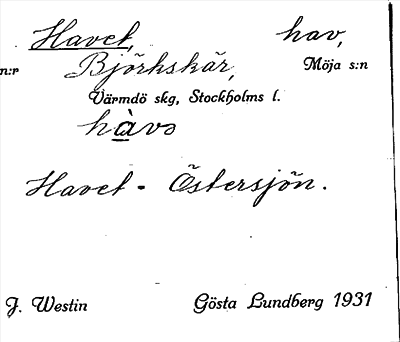 Havet, hav,
n:r Björkskär, Möja s:n
Värmdö skg, Stockholms l.
Havet - Östersjön.
J. Westin Gösta Lundberg 1931